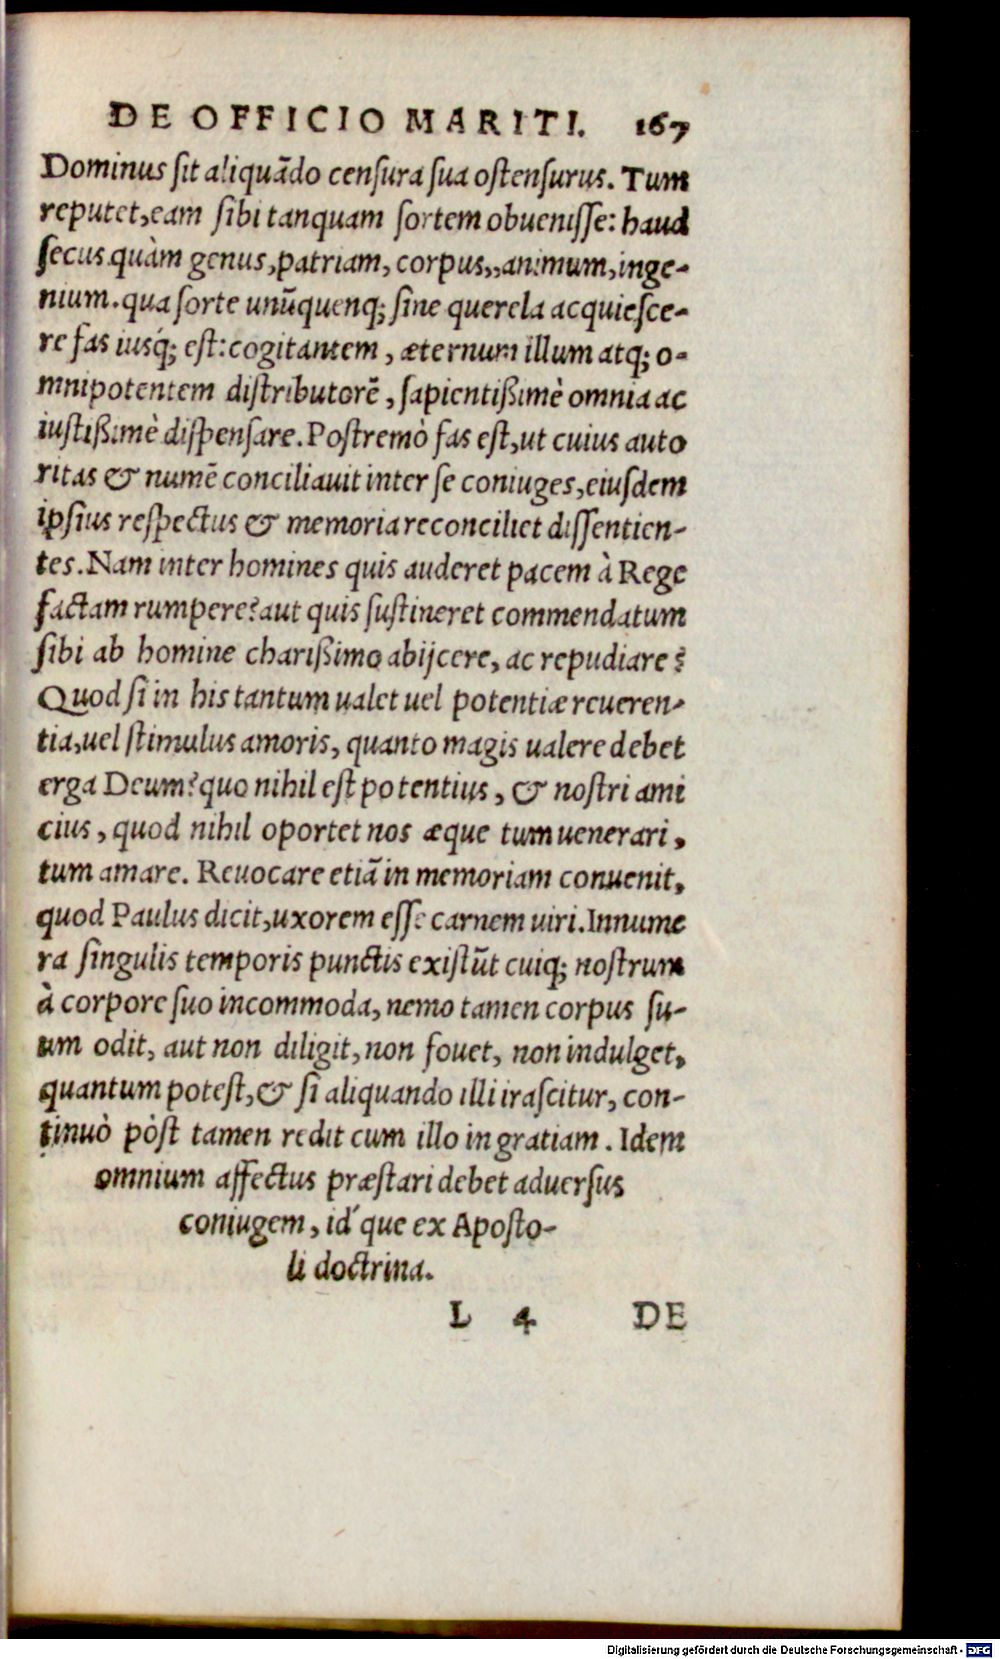 DE OFFICIO MARITI. 167
Dominus sit aliquãdo censura sua ostensurus. Tum
reputet, eam sibi tanquam sortem obuenisse: haud
secus quàm genus, patriam, corpus,, animum, inge-
nium. qua sorte unũquenq; sine querela acquiesce-
re fas iusq́; est: cogitantem, æternum illum atq; o-
mnipotentem distributorẽ, sapientißimè omnia ac
iustißimè dispensare. Postremò fas est, ut cuius auto
ritas & numẽ conciliauit inter se coniuges, eiusdem
ipsius respectus & memoria reconciliet dissentien-
tes. Nam inter homines quis auderet pacem à Rege
factam rumpere? aut quis sustineret commendatum
sibi ab homine charißimo abijcere, ac repudiare?
Quod si in his tantum ualet uel potentiæ reueren-
tia, uel stimulus amoris, quanto magis ualere debet
erga Deum? quo nihil est potentius, & nostri ami
cius, quod nihil oportet nos æque tum uenerari,
tum amare. Reuocare etiã in memoriam conuenit,
quod Paulus dicit, uxorem esse carnem uiri. Innume
ra singulis temporis punctis existũt cuiq; nostrum
à corpore suo incommoda, nemo tamen corpus su-
um odit, aut non diligit, non fouet, non indulget,
quantum potest, & si aliquando illi irascitur, con-
tinuò pòst tamen redit cum illo in gratiam. Idem
omnium affectus præstari debet aduersus
coniugem, id́ que ex Aposto-
li doctrina.
L 4 DE
Digitalisierung gefördert durch die Deutsche Forschungsgemeinschaft - DFG